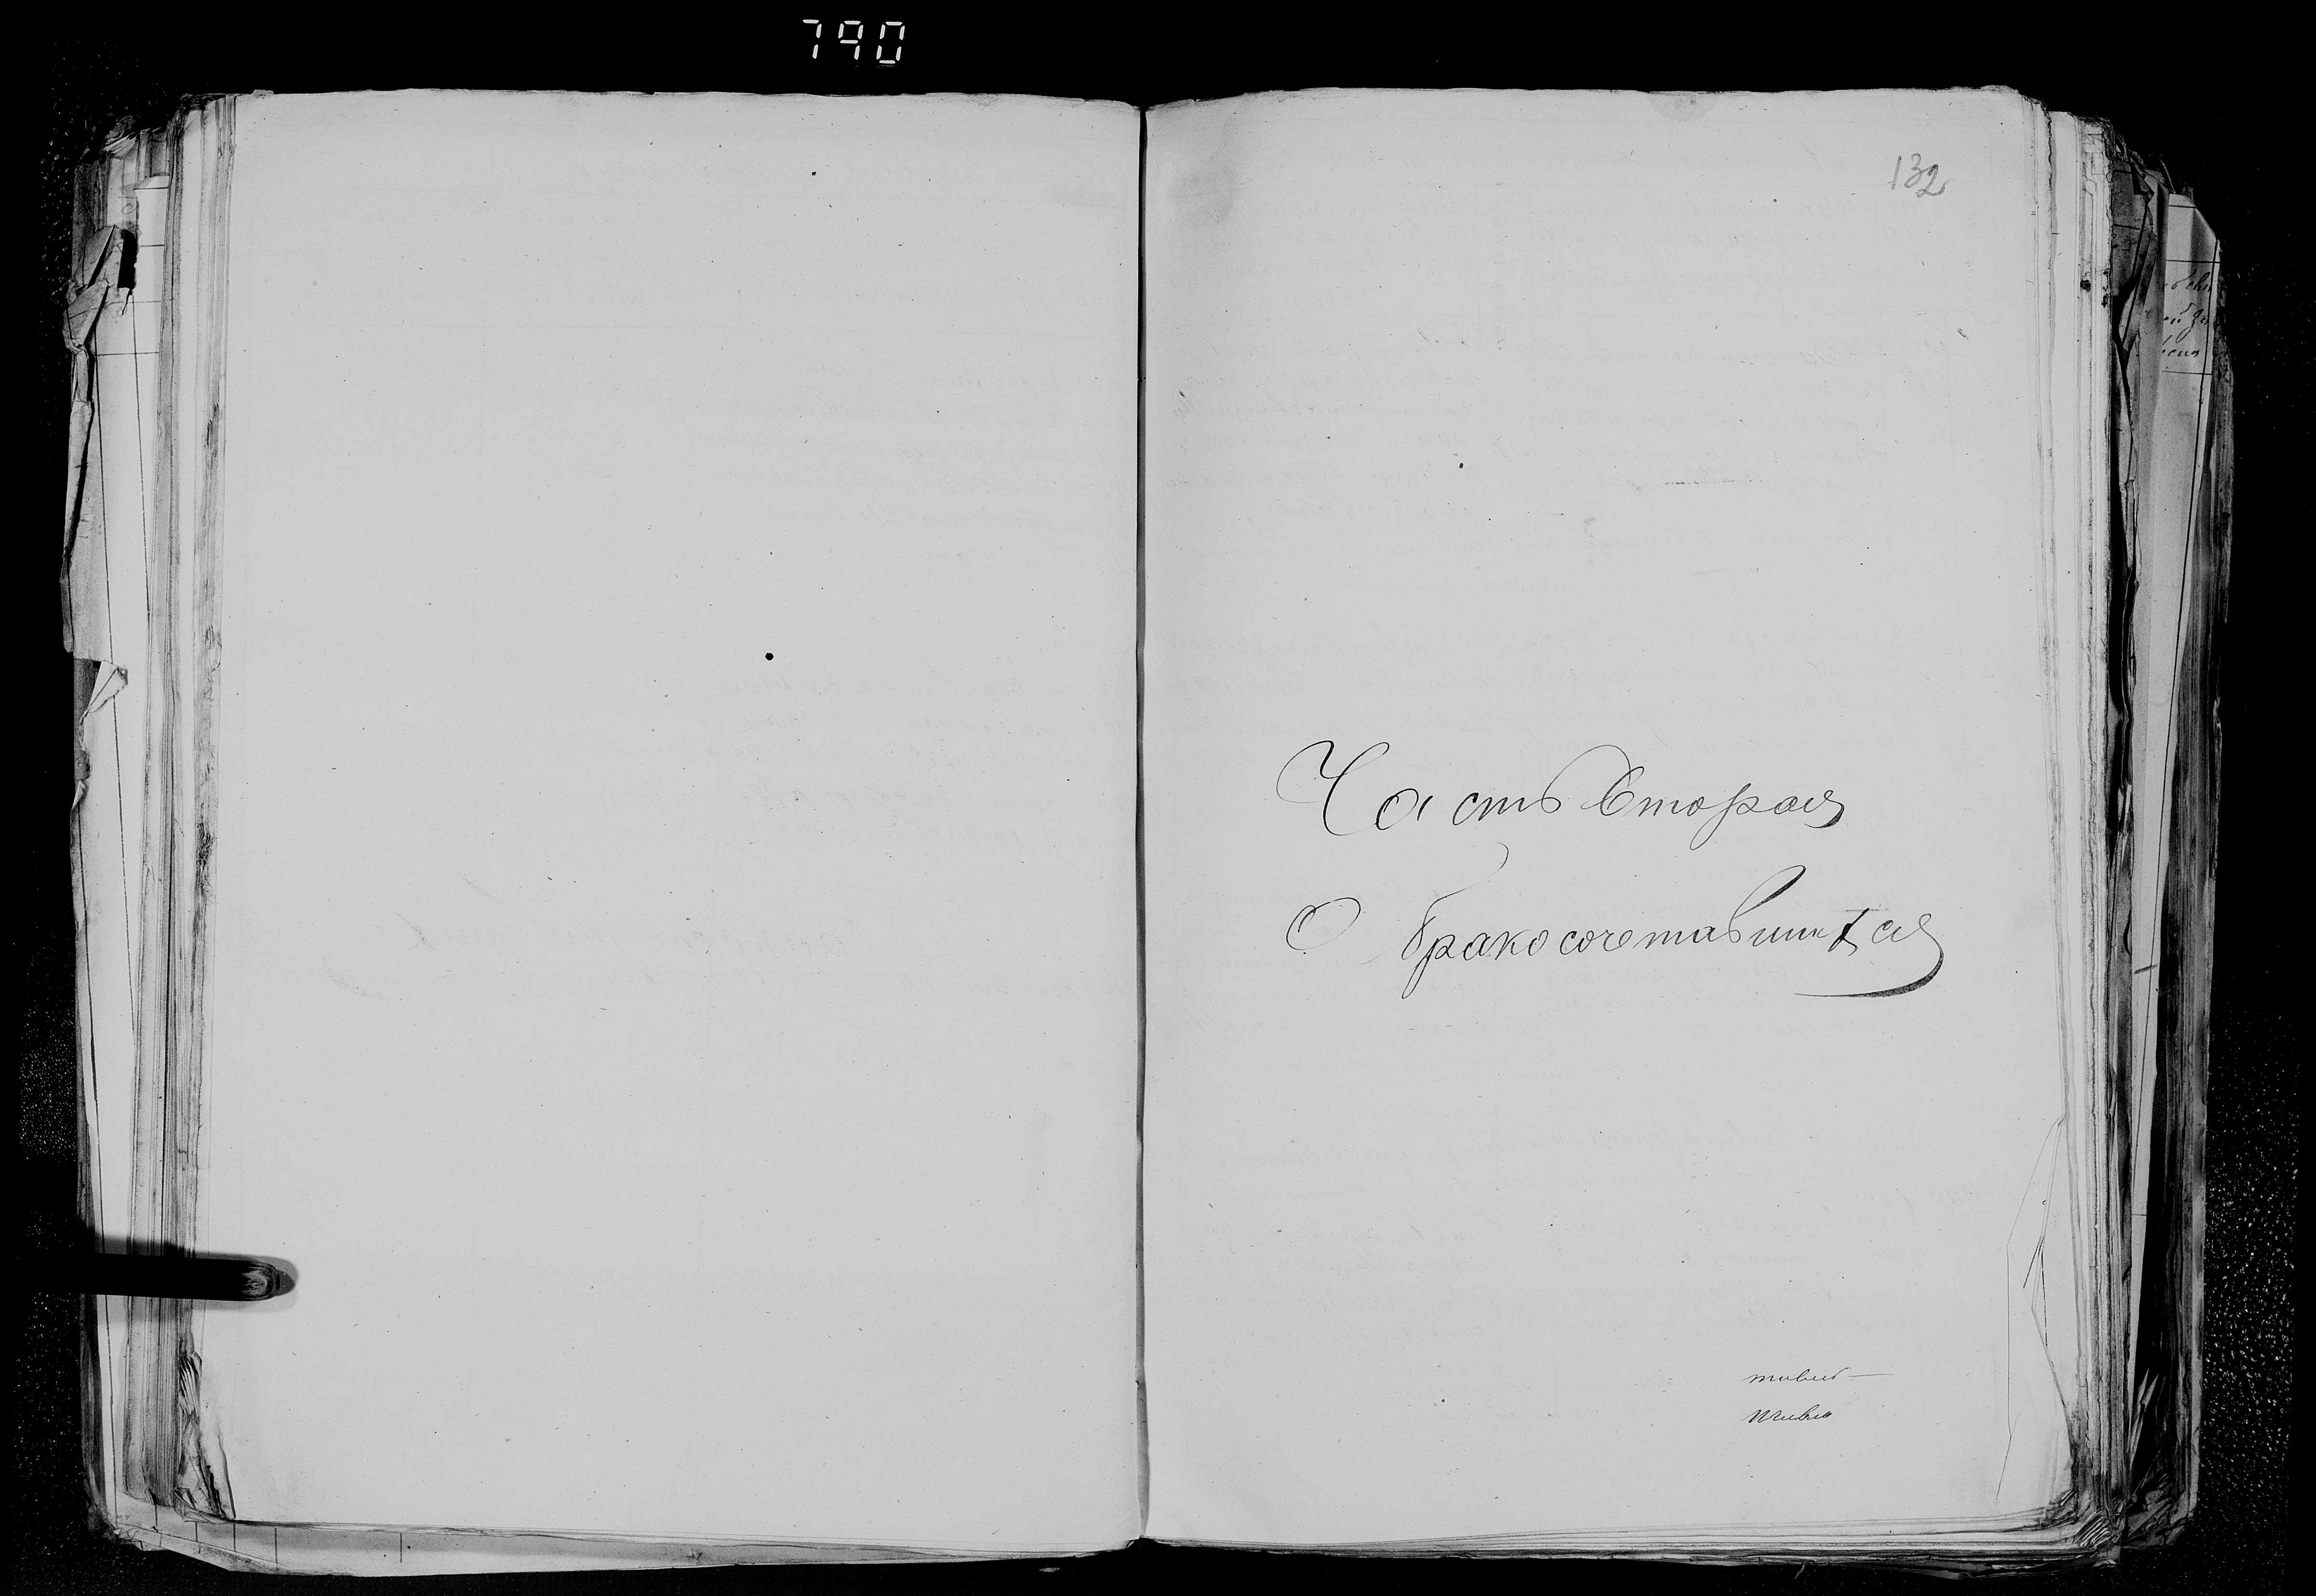 790
132
Часть Вторая
О бракосочетавшихся